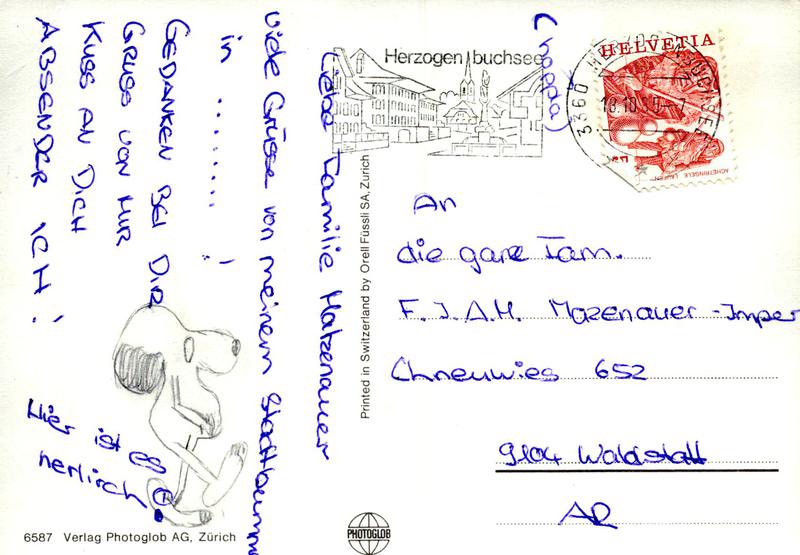 Liebe Familie Matzenauer
viele Grüsse von meinem Stadtbumm
in ........ !
GEDANKEN BEI DIR
GRUSS VON MIR
KUSS AN DICH
ABSENDER ICH!
Hier ist es
herlirch
(hoppa)
Herzogenbuchsee
3360 HERZOGENBUCHSEE
18.10.
HELVETIA
ACHETRINGELE LAUPEN
An
die ganze Fam.
F. J. A. M. Mazenauer-Imper
Chneuwies 652
9104 Waldstatt
AR
Printed in Switzerland by Orell Füssli SA, Zürich
6587 Verlag Photoglob AG, Zürich
PHOTOGLOB